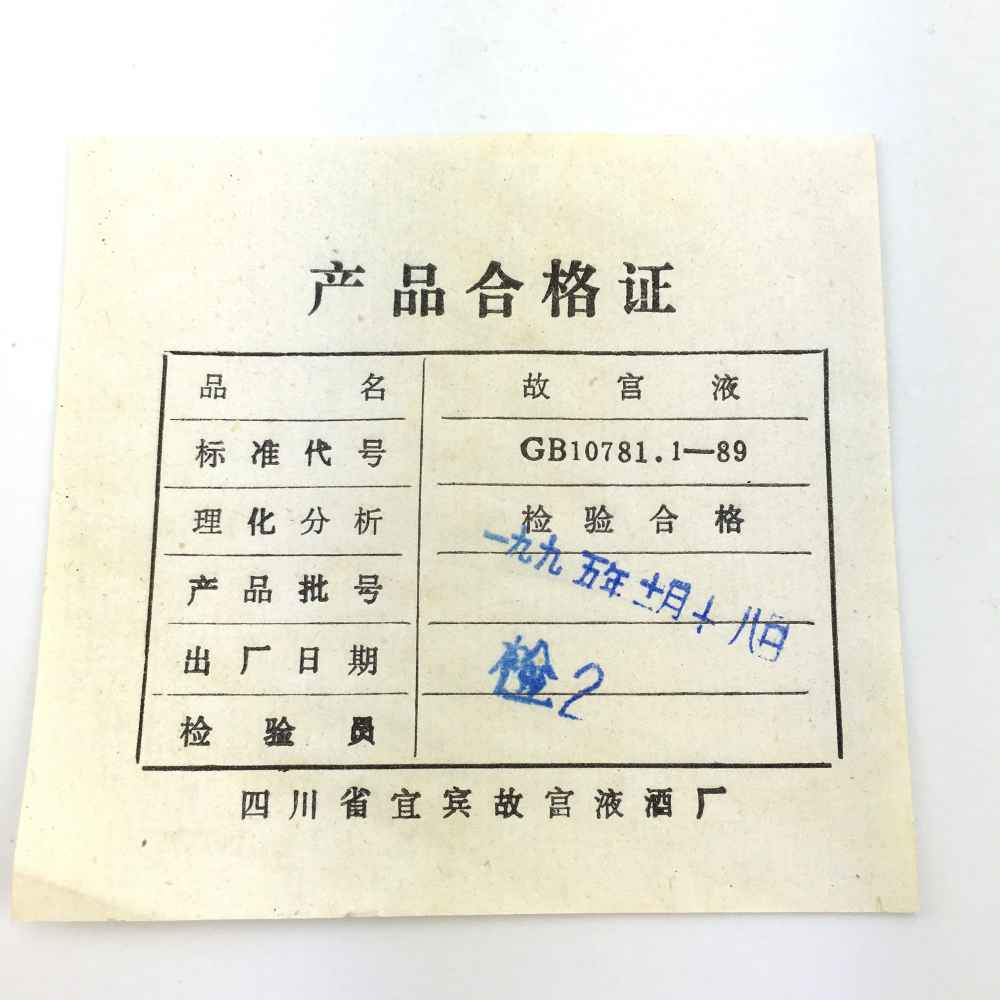 产品合格证
品名 故宫液
标准代号 GB10781.1—89
理化分析 检验合格
产品批号 一九九五年十一月十八日
出厂日期
检验员 检2
四川省宜宾故宫液酒厂